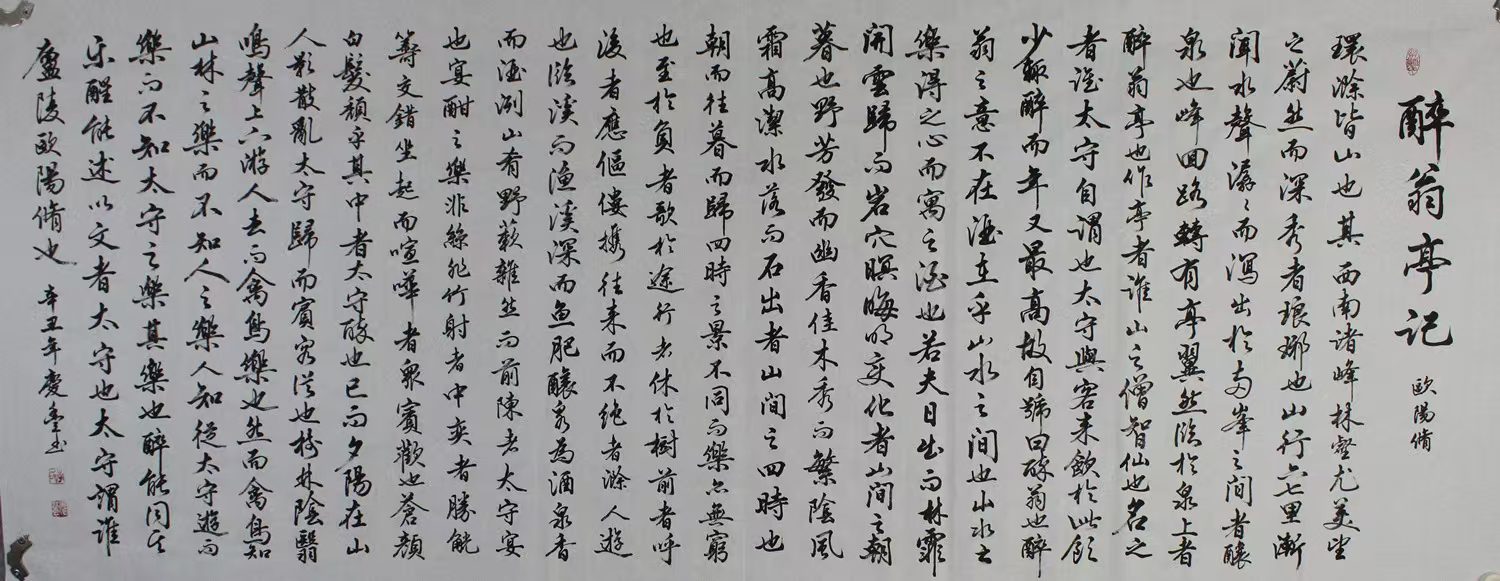 醉翁亭记
歐陽脩
環滁皆山也其西南諸峰林壑尤美望
之蔚然而深秀者琅琊也山行六七里漸
聞水聲潺〻而瀉出於兩峯之間者釀
泉也峰回路轉有亭翼然臨於泉上者
醉翁亭也作亭者誰山之僧智仙也名之
者誰太守自謂也太守與客来飲於此飲
少輒醉而年又最高故自號曰醉翁也醉
翁之意不在酒在乎山水之間也山水之
樂得之心而寓之酒也若夫日出而林霏
開雲歸而岩穴暝晦明变化者山间之朝
暮也野芳發而幽香佳木秀而繁陰風
霜高潔水落而石出者山间之四時也
朝而往暮而歸四時之景不同而樂亦無窮
也至於負者歌於途行者休於樹前者呼
後者應傴僂携往来而不绝者滁人遊
也臨溪而渔溪深而魚肥釀泉為酒泉香
而酒洌山肴野蔌雜然而前陳者太守宴
也宴酣之樂非絲非竹射者中奕者勝觥
籌交錯坐起而喧嘩者衆賓歡也蒼顔
白髮頹乎其中者太守醉也已而夕陽在山
人影散亂太守歸而賓客從也樹林陰翳
鳴聲上下游人去而禽鳥樂也然而禽鳥知
山林之樂而不知人之樂人知從太守遊而
樂而不知太守之樂其樂也醉能同其
乐醒能述以文者太守也太守謂誰
廬陵歐陽脩也
辛丑年慶堂书